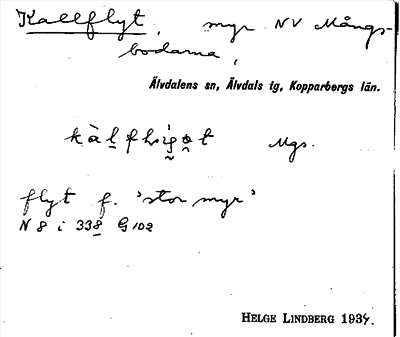 Kallflyt, myr NV Mångs-
bodarna,
Älvdalens sn, Älvdals tg, Kopparbergs län.
Mgs.
flyt f. 'stor myr'
N 8 i 338 G 102
HELGE LINDBERG 1937.